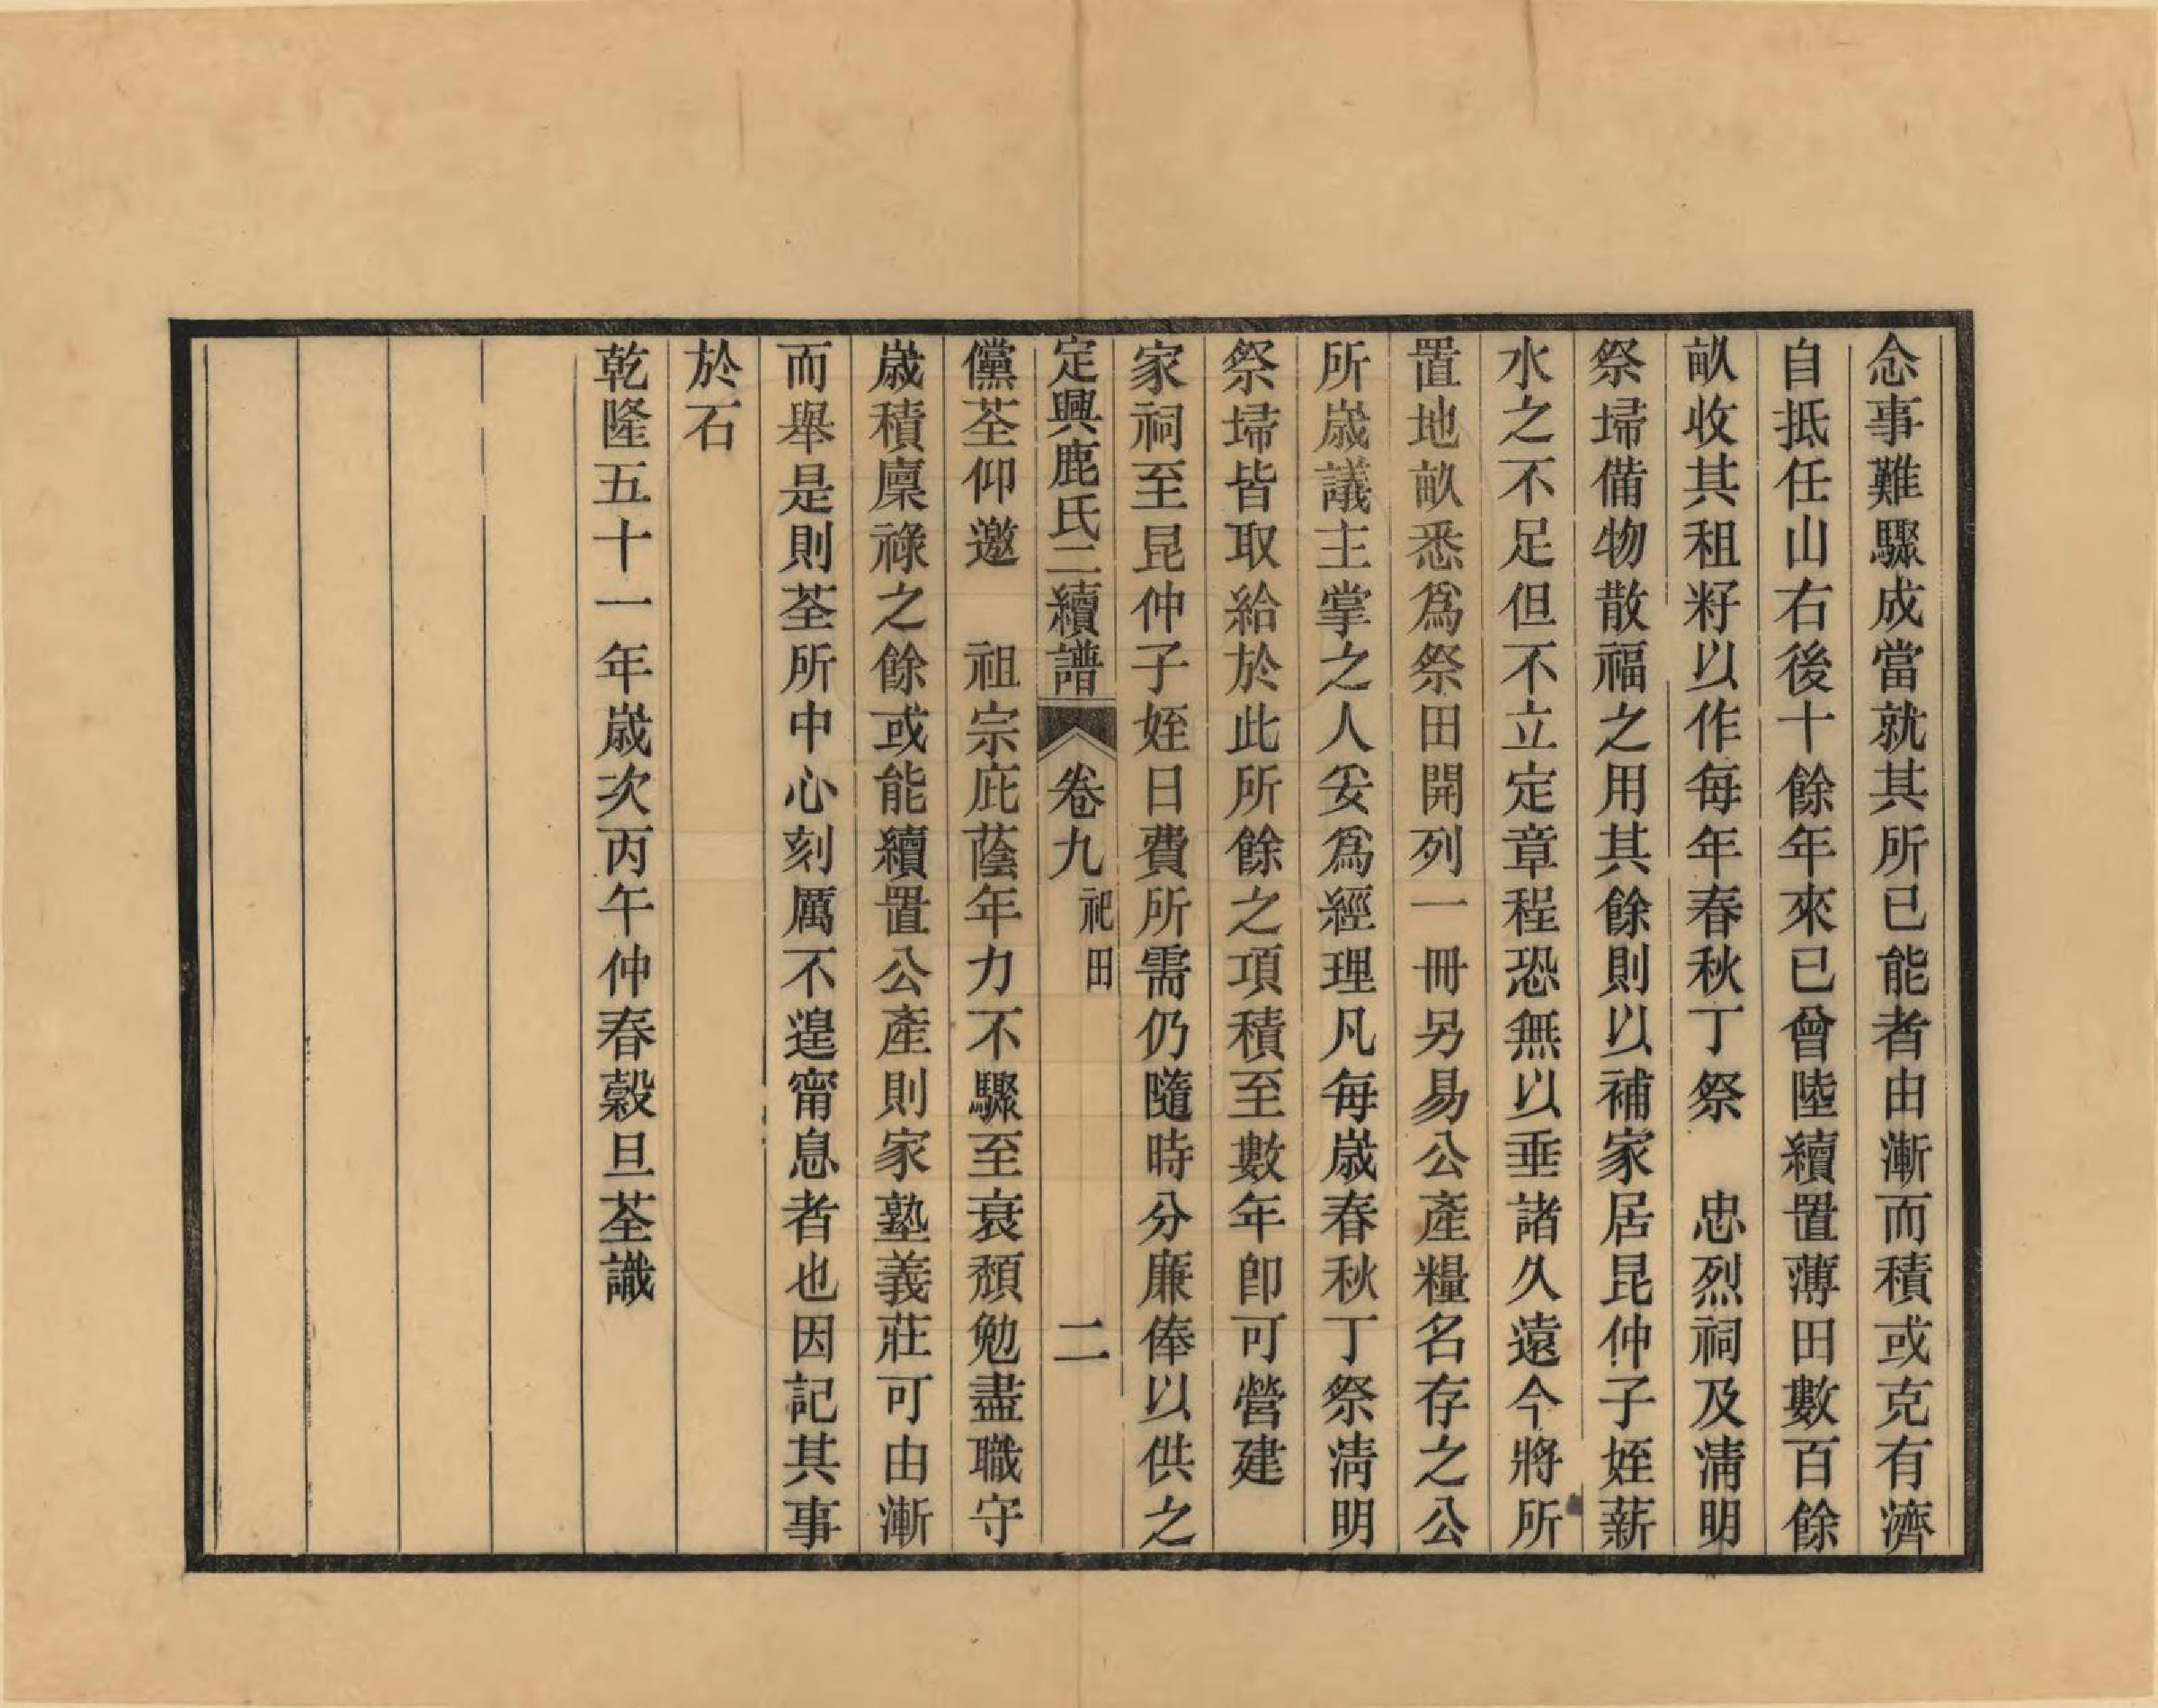 念事難驟成當就其所已能者由漸而積或克有濟
自抵任山右後十餘年來已曾陸續置薄田數百餘
畝收其租籽以作每年春秋丁祭　忠烈祠及淸明
祭埽備物散福之用其餘則以補家居昆仲子姪薪
水之不足但不立定章程恐無以垂諸久遠今將所
置地畝悉爲祭田開列一冊另易公產糧名存之公
所歲議主掌之人妥爲經理凡每歲春秋丁祭淸明
祭埽皆取給於此所餘之項積至數年卽可營建
家祠至昆仲子姪日費所需仍隨時分廉俸以供之
定興鹿氏二續譜　卷九　祀田　二
儻荃仰邀　祖宗庇蔭年力不驟至衰頹勉盡職守
歲積廩祿之餘或能續置公產則家塾義莊可由漸
而舉是則荃所中心刻厲不遑甯息者也因記其事
於石
乾隆五十一年歲次丙午仲春穀旦荃識